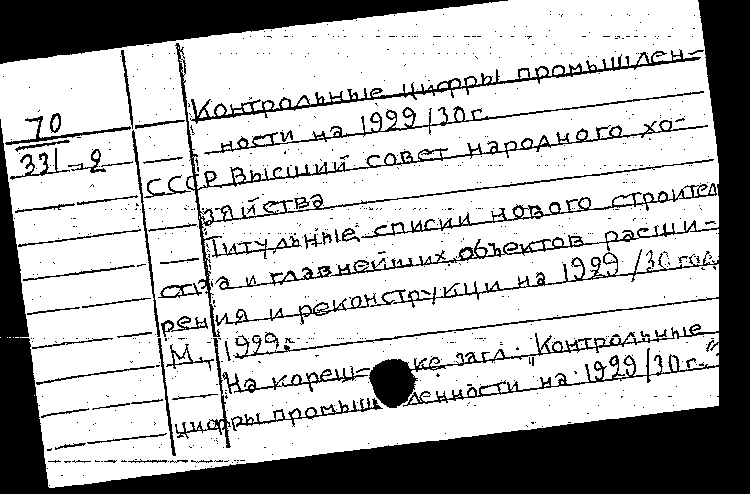 Контрольные цифры промышлен-
70
ности на 1929/30 г.
331-2
СССР Высший совет народного хо-
зяйства
Титульные списии нового строител
ства и главнейших объектов расши-
рения и реконструкци на 1929/30 год.
М., 1929.
На кореш- ке загл.: "Контрольные
цифры промышленности на 1929/30 г."